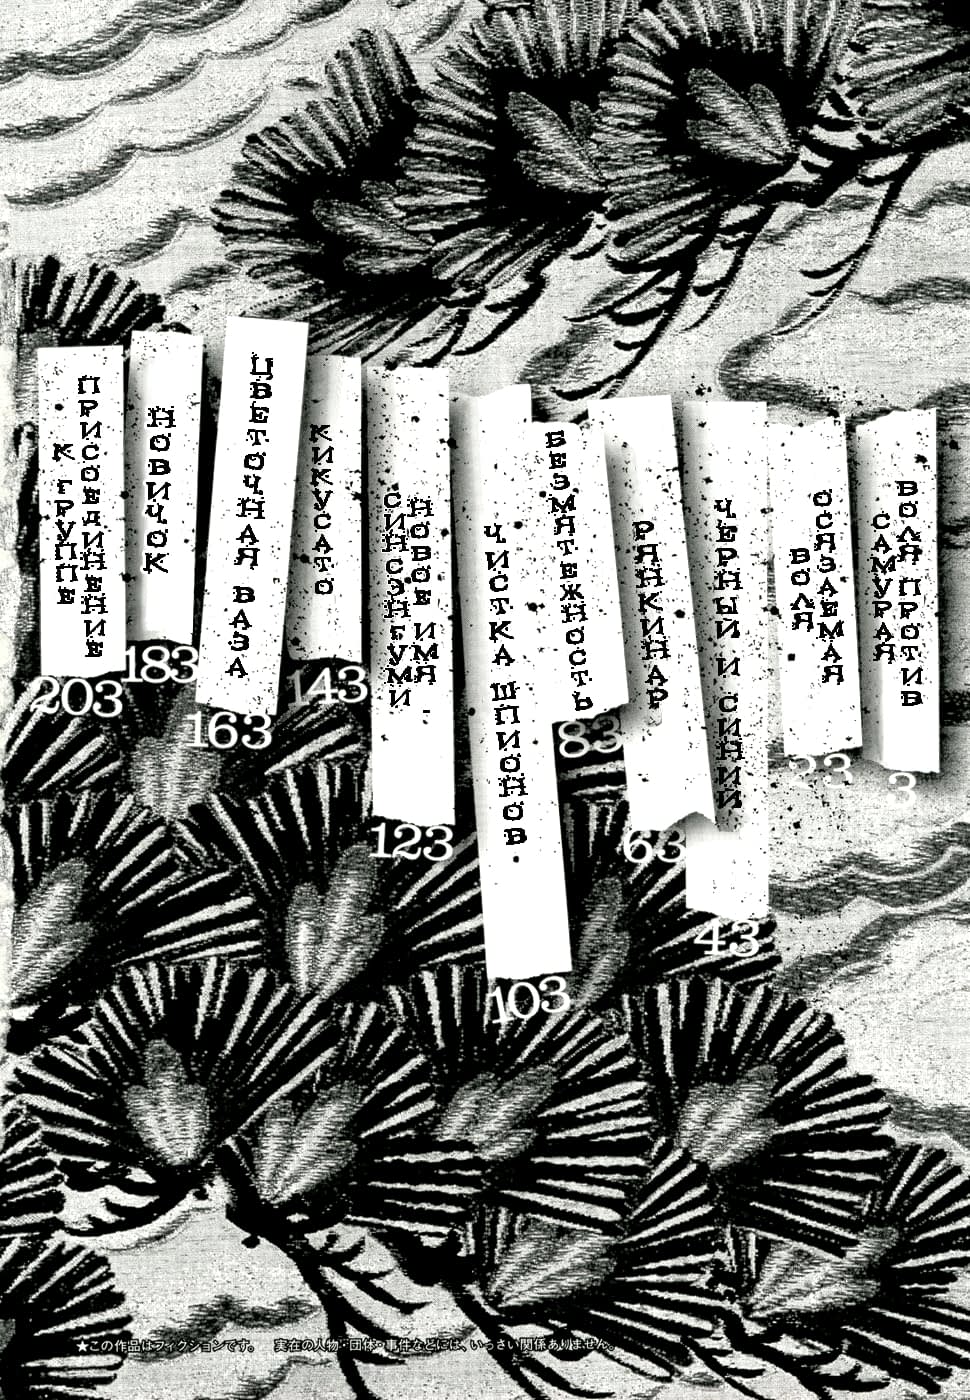 ВОЛЯ ПРОТИВ
САМУРАЯ
3
ОСЯЗАЕМАЯ
ВОЛЯ
23
ЧЕРНЫЙ И СИНИЙ
43
РЯНКИНАР
63
БЕЗМЯТЕЖНОСТЬ
83
ЧИСТКА ШПИОНОВ
103
НОВОЕ ИМЯ
СИНСЭНГУМИ
123
КИКУСАТО
143
ЦВЕТОЧНАЯ ВАЗА
163
НОВИЧОК
183
ПРИСОЕДИНЕНИЕ
К ГРУППЕ
203
★この作品はフィクションです。 実在の人物・団体・事件などには、いっさい関係ありません。